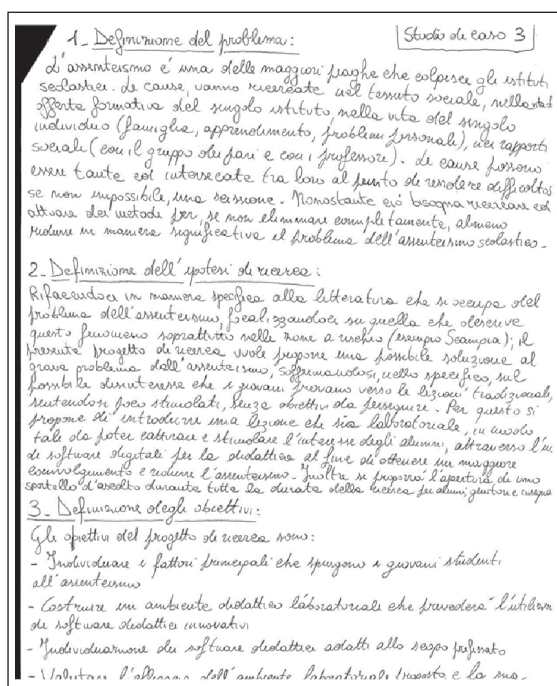 Studio di caso 3
1- Definizione del problema:
L'assenteismo é una delle maggiori piaghe che colpisce gli istituti
scolastici. Le cause, vanno ricercate nel tessuto sociale, nella
offerta formativa del singolo istituto, nella vita del singolo
individuo (famiglia, apprendimento, problemi personali), nei rapporti
sociale (con il gruppo dei pari e con i professori). Le cause possono
essere tante ed intersecate tra loro al punto di rendere difficoltos
se non impossibile, una scissione. Nonostante ciò bisogna ricercare ed
attuare dei metodi per, se non eliminare completamente, almeno
ridurre in maniera significativa il problema dell'assenteismo scolastico.
2- Definizione dell'ipotesi di ricerca:
Rifacendoci in maniera specifica alla letteratura che si occupa del
problema dell'assenteismo, focalizzandoci su quella che descrive
questo fenomeno soprattutto nelle zone a rischio (esempio Scampia); il
presente progetto di ricerca vuole proporre una possibile soluzione al
grave problema dell'assenteismo, soffermandosi, nello specifico, sul
possibile disinteresse che i giovani provano verso le lezioni tradizionali,
sentendosi poco stimolati, senza obiettivi da perseguire. Per questo si
propone di introdurre una lezione che sia laboratoriale, in modo
tale da poter catturare e stimolare l'interesse degli alunni, attraverso l'u
di software digitali per la didattica al fine di ottenere un maggiore
coinvolgimento e ridurre l'assenteismo. Inoltre si proporrà l'apertura di uno
sportello d'ascolto durante tutta la durata della ricerca per alunni, genitori e insegna
3- Definizione degli obiettivi:
Gli obiettivi del progetto di ricerca sono:
- Individuare i fattori principali che spingono i giovani studenti
all'assenteismo
- Costruire un ambiente didattico laboratoriale che prevederà l'utilizzo
di software didattici innovativi
- Individuazione dei software didattici adatti allo scopo prefissato
- Valutare l'efficacia dell'ambiente laboratoriale e la sua